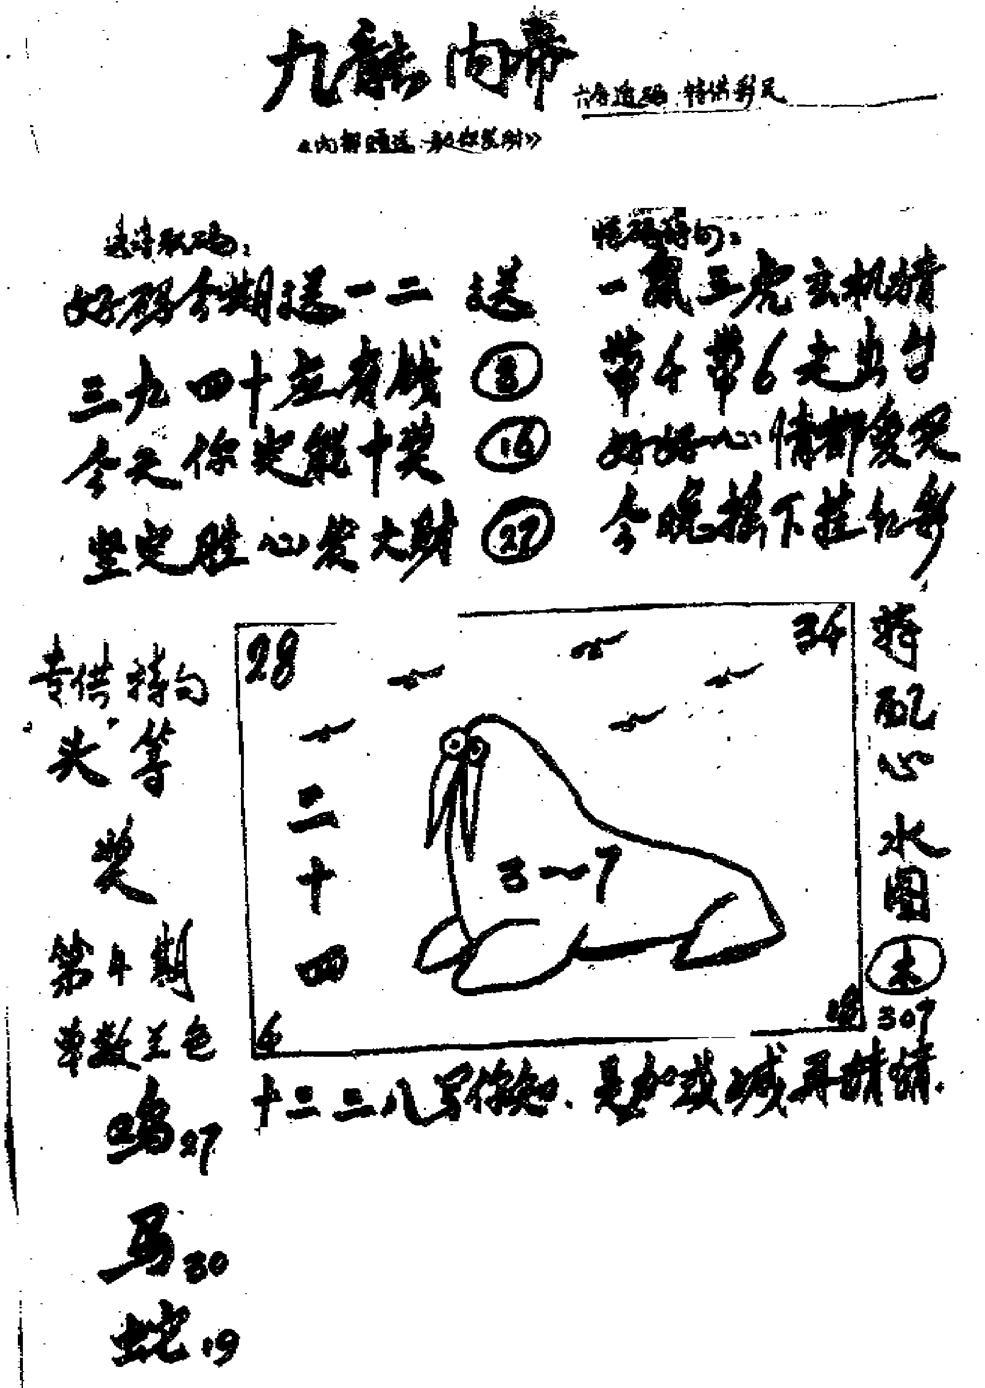 九龙内幕
六合透码 特供彩民
《内部赠送 祝你发财》
好码今期送一二 送
三九四十左有钱 ⑧
今天你定能中奖 ⑯
坚定胜心发大财 ㉗
一飘三虎玄机猜
带4带6走出台
好好心情都爱见
今晚摇下挂红彩
28
34
二十四
3~7
6
特配心水图
307
专供特句
头等
奖
第4期
单数兰色
鸡27
马30
蛇19
十二三八写你知.是加或减再猜猜.